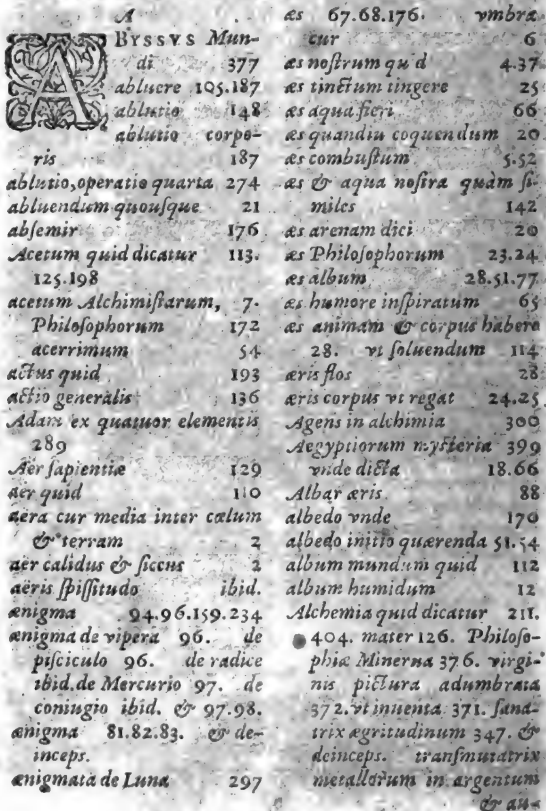 A
ABYSSVS Mun-
di 377
abluere 105.187
ablutio 148
ablutio corpo-
ris 187
ablutio, operatio quarta 274
abluendum quousque 21
absemir 176
Acetum quid dicatur 113.
125.198
acetum Alchimistarum, 7.
Philosophorum 172
acerrimum 54
actus quid 193
actio generalis 136
Adam ex quatuor elementis
289
Aër sapientiæ 129
aer quid 110
aera cur media inter cælum
& terram 2
aër calidus & siccus 2
aëris spissitudo ibid.
ænigma 94.96.159.234
ænigma de vipera 96. de
pisciculo 96. de radice
ibid. de Mercurio 97. de
coniugio ibid. & 97.98.
ænigma 81.82.83. & de-
inceps.
ænigmata de Luna 297
æs 67.68.176. vmbra
cur 6
æs nostrum quid 4.37
æs tinctum tingere 25
æs aqua fieri 66
æs quandiu coquendum 20
æs combustum 5.52
æs & aqua nostra quàm si-
miles 142
æs arenam dici 20
æs Philosophorum 23.24
æs album 28.51.77
æs humore inspiratum 65
æs animam & corpus habere
28. vt soluendum 114
æris flos 28
æris corpus vt regat 24.25
Agens in alchimia 300
Aegyptiorum mysteria 399
vnde dicta 18.66
Albar æris 88
albedo vnde 170
albedo initio quærenda 51.54
album mundum quid 112
album humidum 12
Alchemia quid dicatur 211.
404. mater 126. Philoso-
phiæ Minerua 376. virgi-
nis pictura adumbrata
372. vt inuenta 371. sana-
trix ægritudinum 347. &
deinceps. transmutatrix
metallorum in argentum
& au-